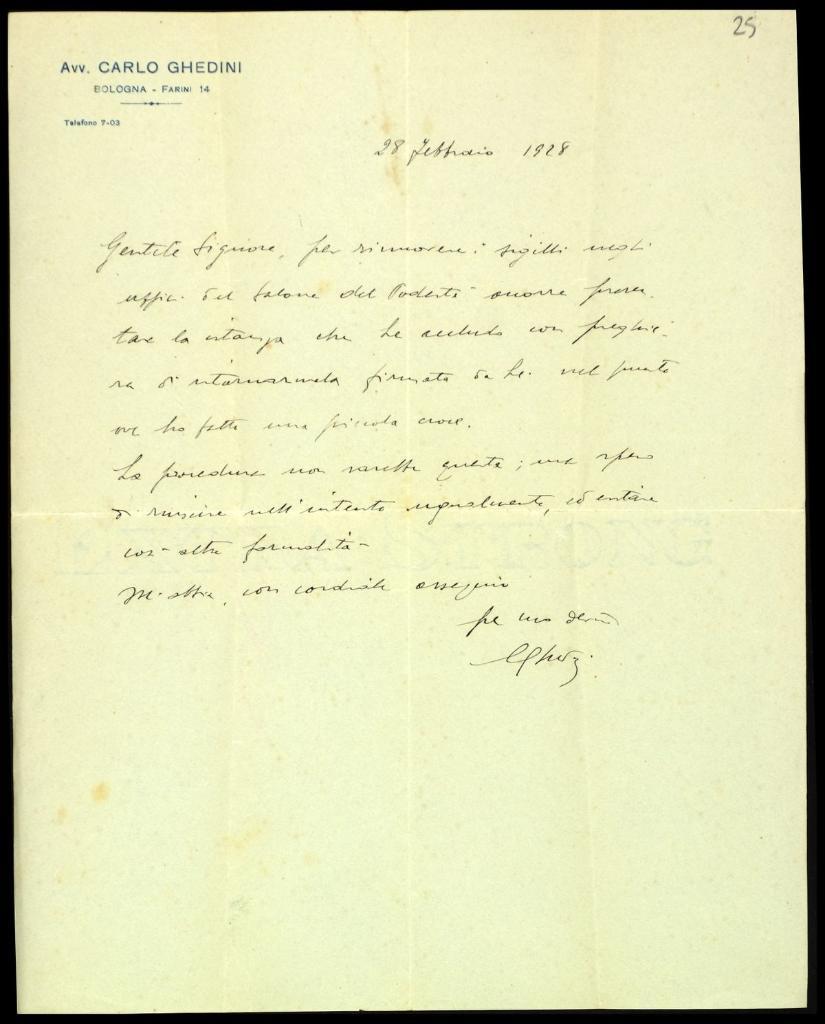 25
Avv. CARLO GHEDINI
BOLOGNA - FARINI 14
Telefono 7-03
28 Febbraio 1928
Gentile Signore, per rimuovere i sigilli negli
uffici del Salone del Podestà occorre presen-
tare la istanza che Le accludo con preghie-
ra di ritornarmela firmata da Lei nel punto
ove ho fatto una piccola croce.
La procedura non sarebbe questa; ma spero
di riuscire nell'intento ugualmente, ed evitare
così altre formalità -
Mi abbia, con cordiale ossequio
CGhedi